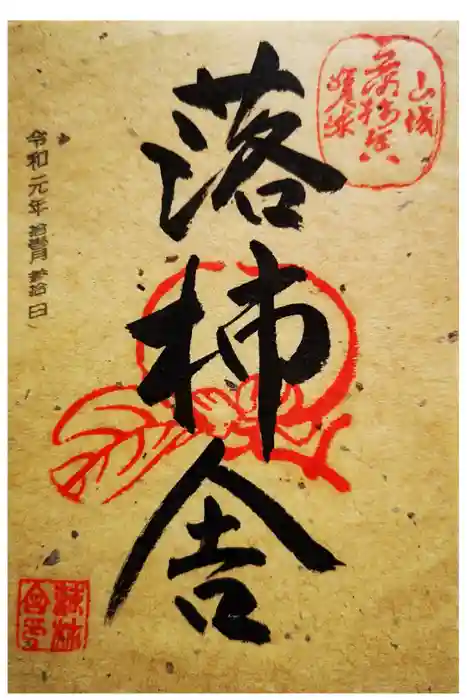 山城
落柿舎
嵯峨
落柿舎
令和元年拾壹月参拾日
落柿舎印